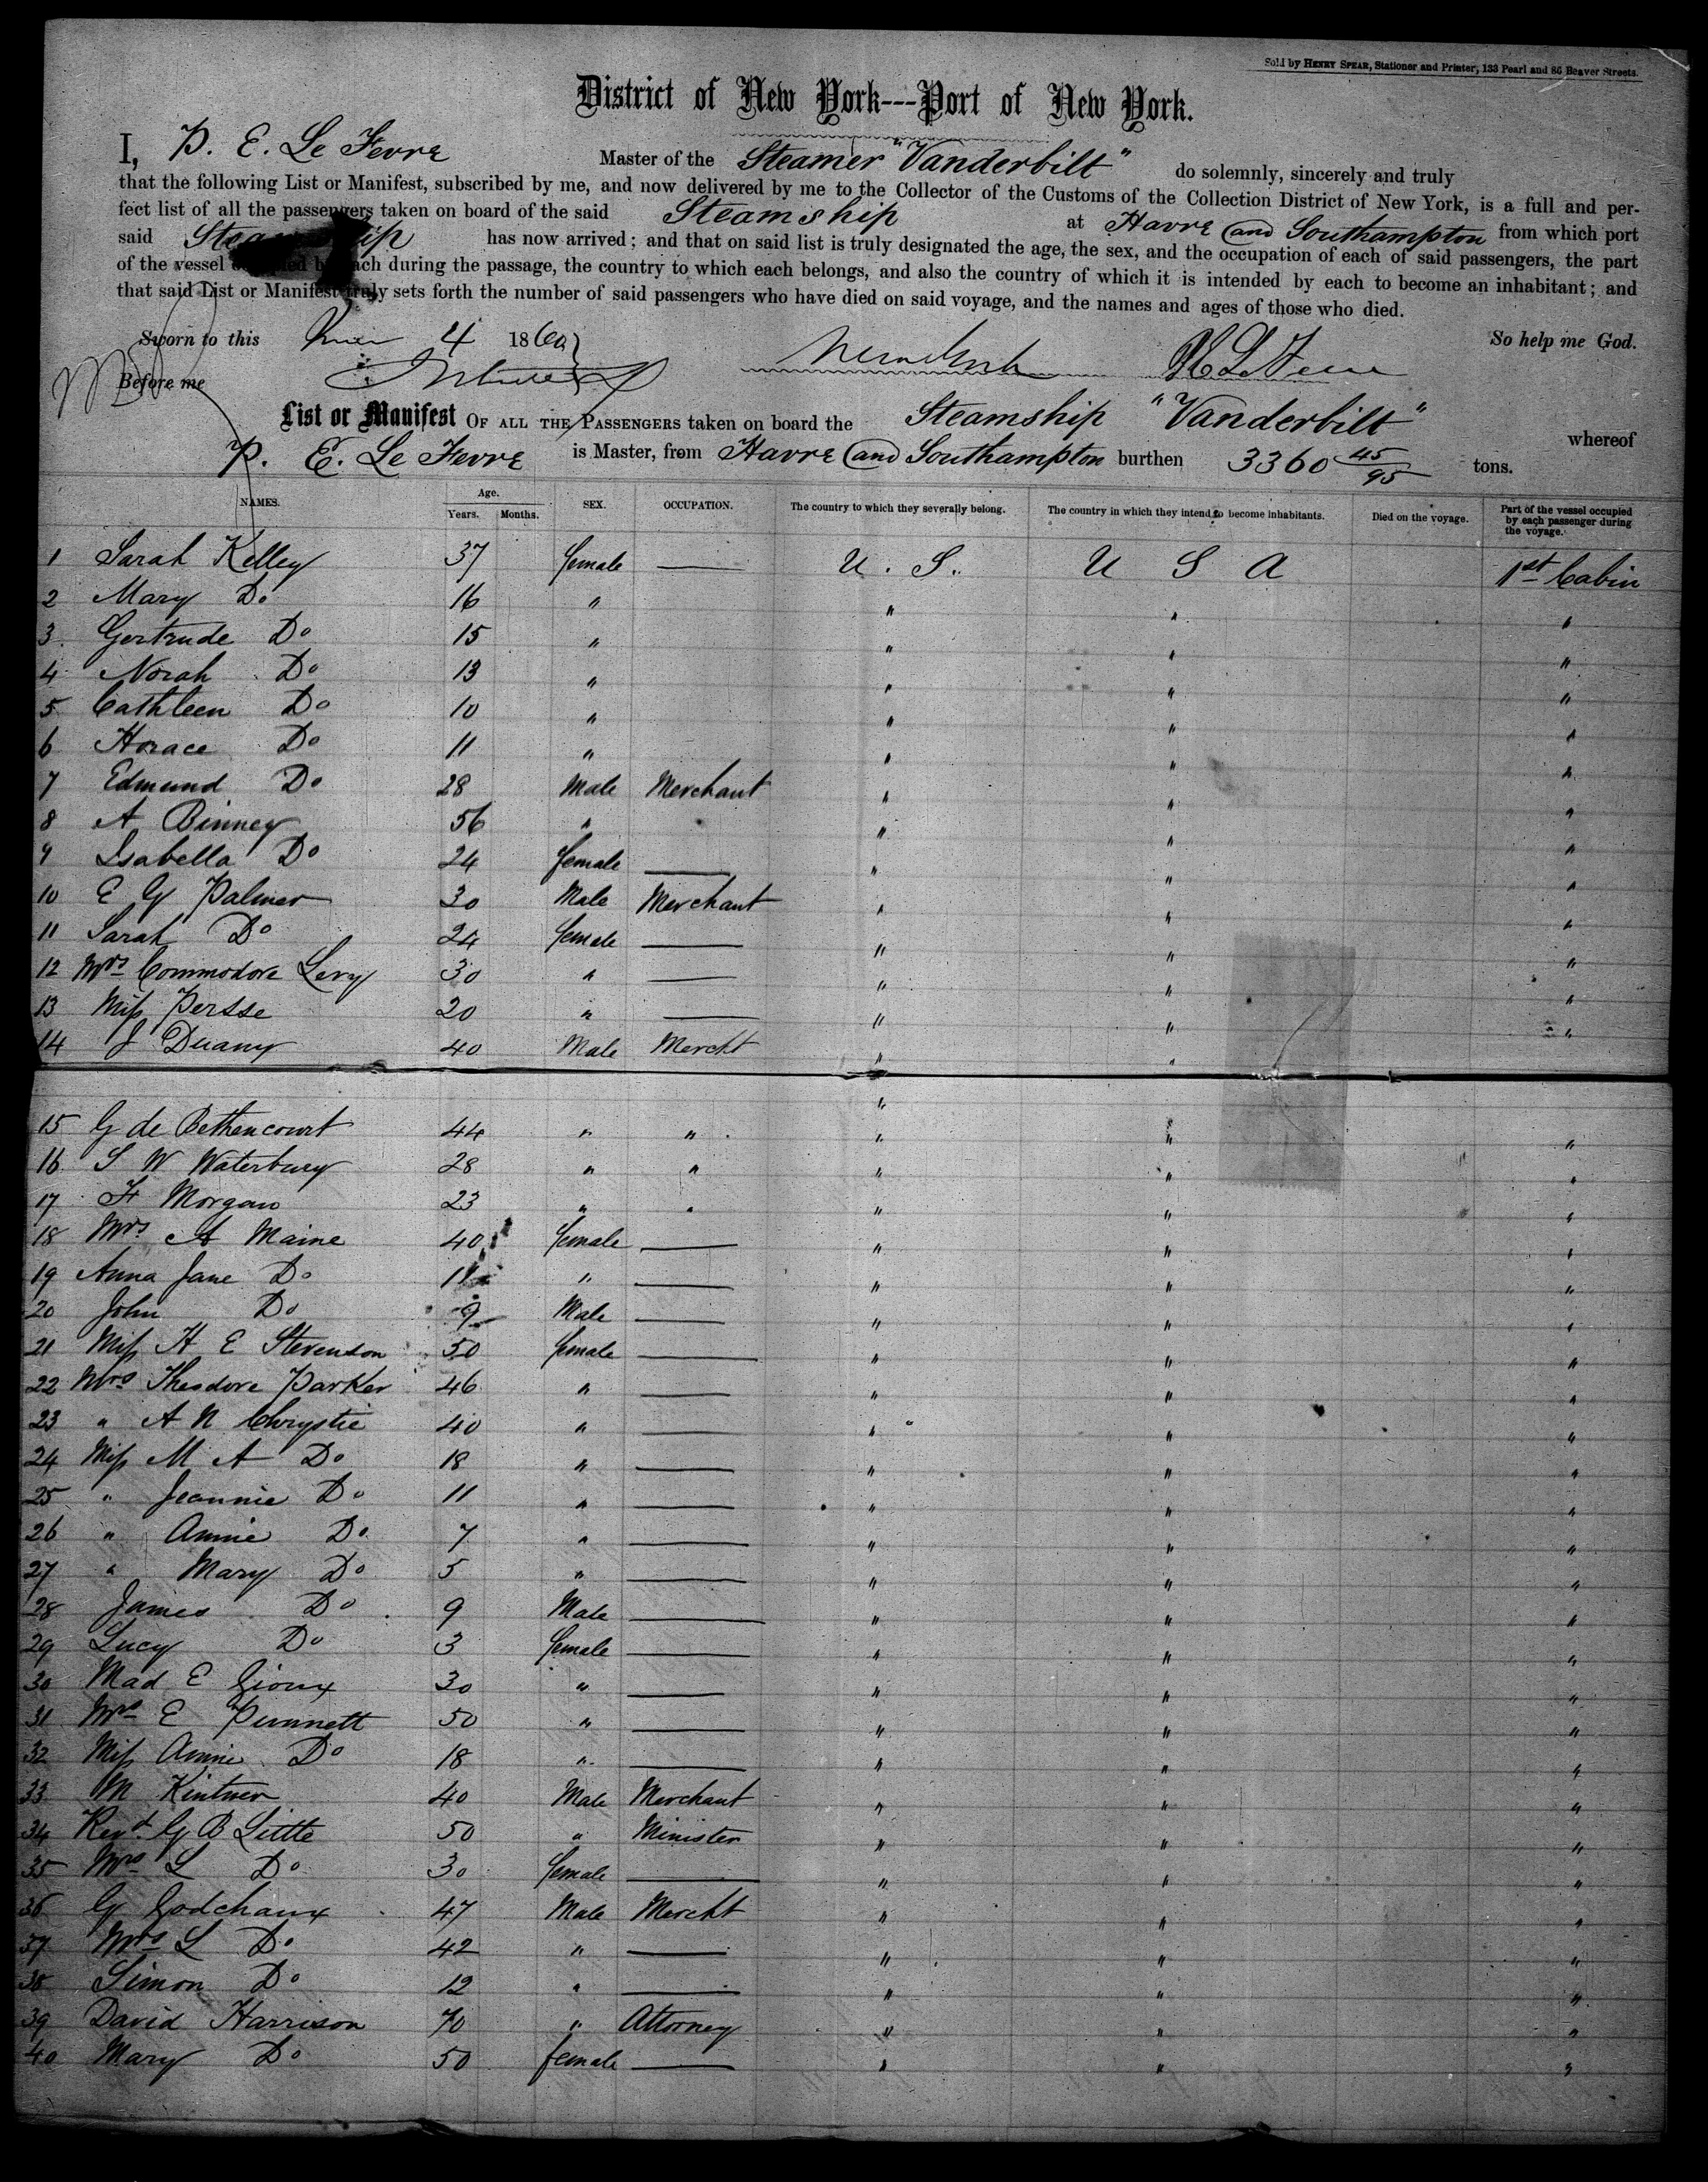 Sold by HENRY SPEAR, Stationer and Printer, 133 Pearl and 86 Beaver Streets.
District of New York---Port of New York.
I, P. E. Le Fevre Master of the Steamer "Vanderbilt" do solemnly, sincerely and truly
that the following List or Manifest, subscribed by me, and now delivered by me to the Collector of the Customs of the Collection District of New York, is a full and per-
fect list of all the passengers taken on board of the said Steamship at Havre and Southampton from which port
said Steamship has now arrived; and that on said list is truly designated the age, the sex, and the occupation of each of said passengers, the part
of the vessel occupied by each during the passage, the country to which each belongs, and also the country of which it is intended by each to become an inhabitant; and
that said List or Manifest truly sets forth the number of said passengers who have died on said voyage, and the names and ages of those who died.
Sworn to this 4 1860 So help me God.
Before me
List or Manifest OF ALL THE PASSENGERS taken on board the Steamship "Vanderbilt" whereof
P. E. Le Fevre is Master, from Havre and Southampton burthen 3360 45/95 tons.
NAMES. Age. Years. Months. SEX. OCCUPATION. The country to which they severally belong. The country in which they intend to become inhabitants. Died on the voyage. Part of the vessel occupied by each passenger during the voyage.
1 Sarah Kelley 37 female — U. S. U S A 1st Cabin
2 Mary Do 16 " " " "
3 Gertrude Do 15 " " " "
4 Norah Do 13 " " " "
5 Cathleen Do 10 " " " "
6 Horace Do 11 " " " "
7 Edmund Do 28 Male Merchant " " "
8 A Binney 56 " " " "
9 Isabella Do 24 female — " " "
10 E G Palmer 30 Male Merchant " " "
11 Sarah Do 24 female — " " "
12 Mrs Commodore Levy 30 " — " " "
13 Miss Persse 20 " — " " "
14 J Duany 40 Male Mercht " " "
15 G de Bethencourt 44 " " " " "
16 S W Waterbury 28 " " " " "
17 F Morgan 23 " " " " "
18 Mrs A Maine 40 female — " " "
19 Anna Jane Do 11 " — " " "
20 John Do 9 Male — " " "
21 Miss H E Stevenson 50 female — " " "
22 Mrs Theodore Parker 46 " — " " "
23 " A N Chrystie 40 " — " " "
24 Miss M A Do 18 " — " " "
25 " Jeannie Do 11 " — " " "
26 " Annie Do 7 " — " " "
27 " Mary Do 5 " — " " "
28 James Do 9 Male — " " "
29 Lucy Do 3 female — " " "
30 Mad E Gioux 30 " — " " "
31 Mrs E Pumnett 50 " — " " "
32 Miss Annie Do 18 " — " " "
33 M Kintner 40 Male Merchant " " "
34 Revd. G B Little 50 " Minister " " "
35 Mrs L Do 30 female — " " "
36 G Godchaux 47 Male Mercht " " "
37 Mrs L Do 42 " — " " "
38 Simon Do 12 " — " " "
39 David Harrison 70 " Attorney " " "
40 Mary Do 50 female — " " "